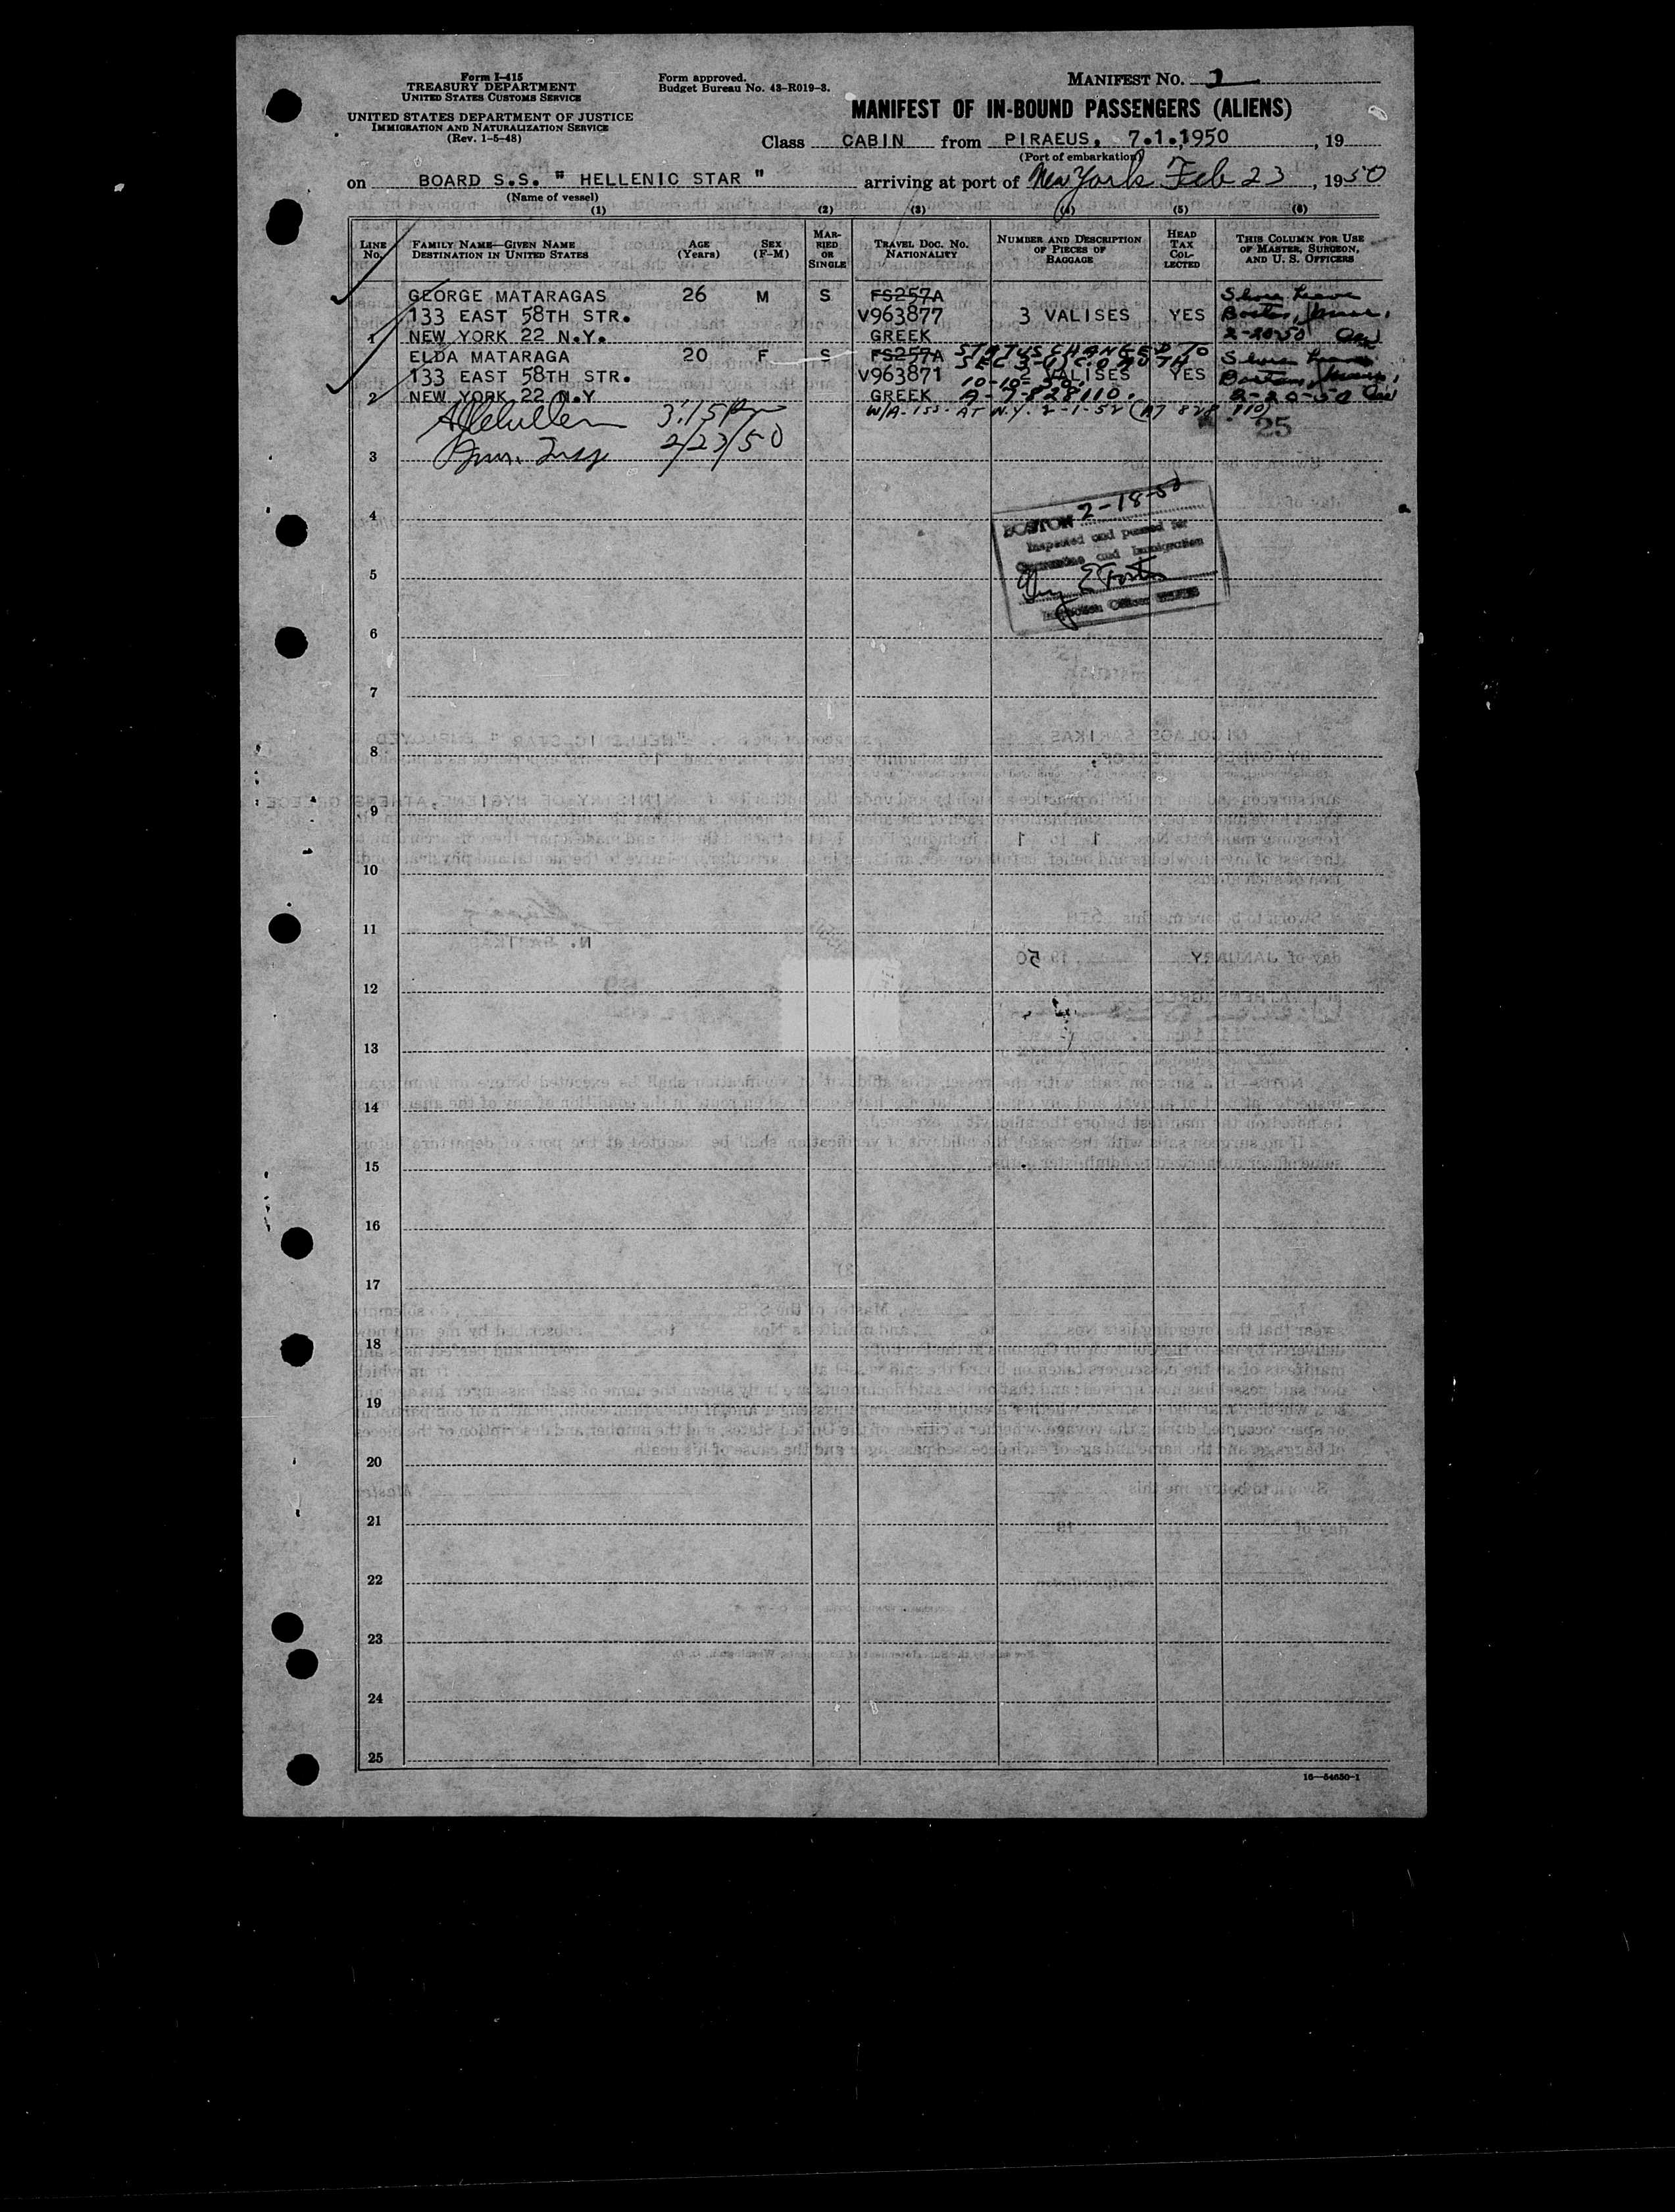 Form I-415
TREASURY DEPARTMENT
UNITED STATES CUSTOMS SERVICE
UNITED STATES DEPARTMENT OF JUSTICE
IMMIGRATION AND NATURALIZATION SERVICE
(Rev. 1-5-48)
Form approved.
Budget Bureau No. 43-R019-3.
MANIFEST NO. 1
MANIFEST OF IN-BOUND PASSENGERS (ALIENS)
Class CABIN from PIRAEUS. 7.1.1950, 19
(Port of embarkation)
on BOARD S.S. " HELLENIC STAR " arriving at port of New York Feb 23, 1950
(Name of vessel)
(1) (2) (3) (4) (5) (6)
LINE No. FAMILY NAME—GIVEN NAME DESTINATION IN UNITED STATES AGE (Years) SEX (F-M) MARRIED OR SINGLE TRAVEL DOC. NO. NATIONALITY NUMBER AND DESCRIPTION OF PIECES OF BAGGAGE HEAD TAX COLLECTED THIS COLUMN FOR USE OF MASTER, SURGEON, AND U. S. OFFICERS
GEORGE MATARAGAS 26 M S FS257A Shore Leave
133 EAST 58TH STR. V963877 3 VALISES YES Boston, Mass.
1 NEW YORK 22 N.Y. GREEK 2-20-50
ELDA MATARAGA 20 F S FS257A STATUS CHANGED TO Shore Leave
133 EAST 58TH STR. V963871 2 VALISES YES Boston, Mass.
10-10-50.
2 NEW YORK 22 N.Y GREEK A-7-828110. 2-20-50
W/A. ISS. AT N.Y. 2-1-52 (A7 828 110)
3:15 pm
25
Imm. Insp 2/23/50
3
4
BOSTON 2-18-50
Inspected and passed for
Quarantine and Immigration
5
6
7
8
9
10
11
12
13
14
15
16
17
18
19
20
21
22
23
24
25
16—54650-1